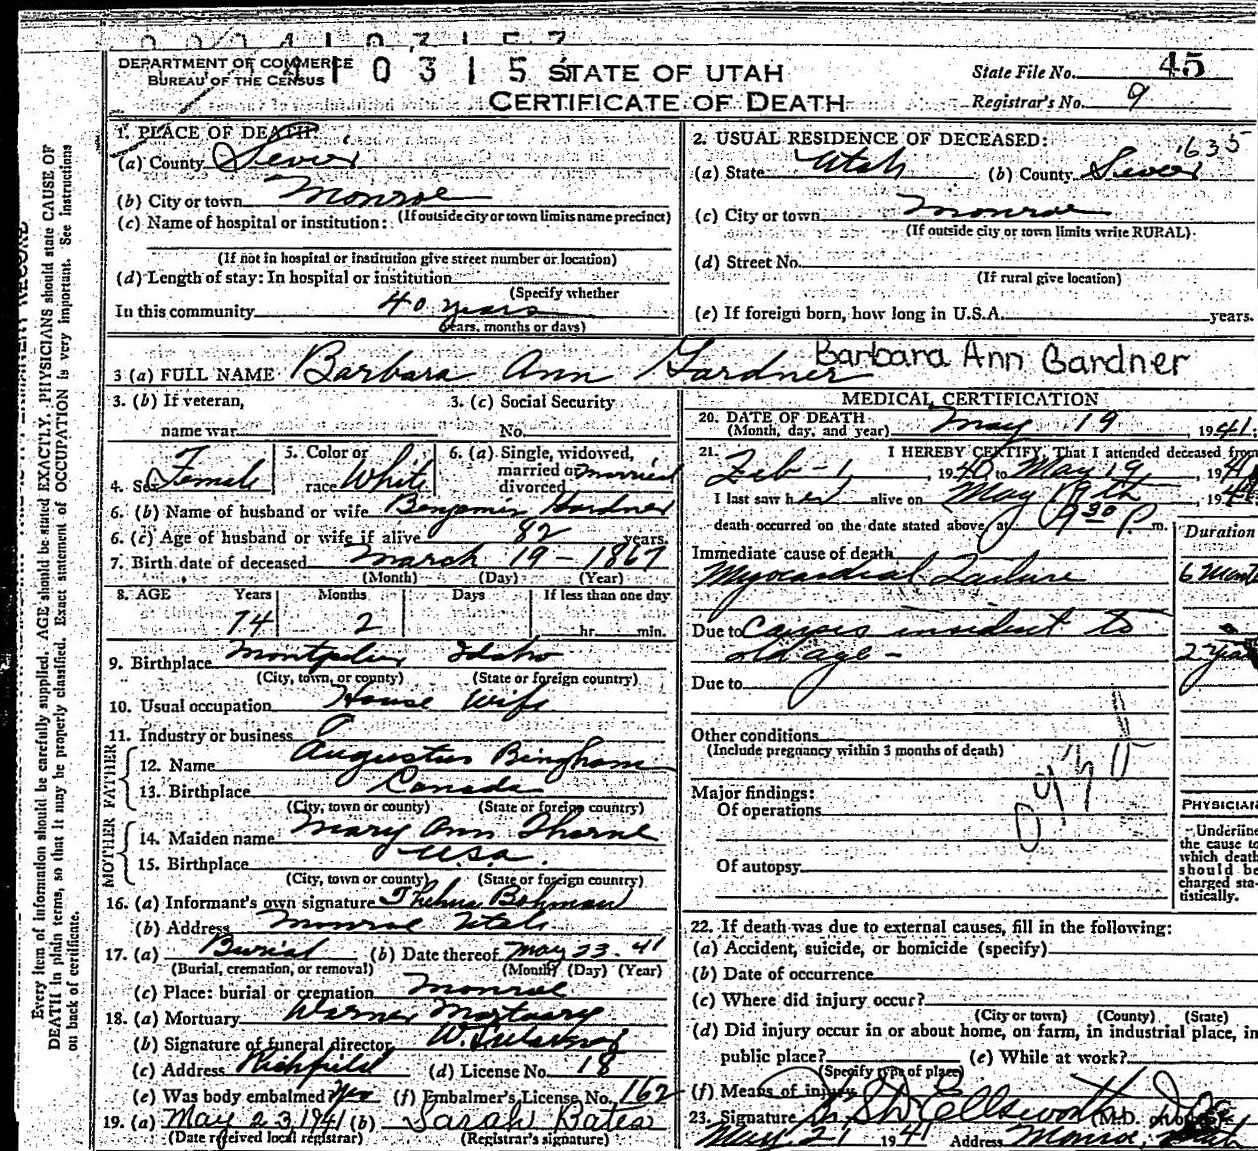 DEPARTMENT OF COMMERCE
BUREAU OF THE CENSUS
STATE OF UTAH
CERTIFICATE OF DEATH
State File No. 45
Registrar's No. 9
1. PLACE OF DEATH:
(a) County Sevier
(b) City or town Monroe
(If outside city or town limits name precinct)
(c) Name of hospital or institution:
(If not in hospital or institution give street number or location)
(d) Length of stay: In hospital or institution
(Specify whether
In this community 40 years
years, months or days)
2. USUAL RESIDENCE OF DECEASED:
635
(a) State Utah (b) County Sevier
(c) City or town Monroe
(If outside city or town limits write RURAL)
(d) Street No.
(If rural give location)
(e) If foreign born, how long in U.S.A. years.
3 (a) FULL NAME Barbara Ann Gardner Barbara Ann Gardner
3. (b) If veteran, name war
3. (c) Social Security No.
4. Sex Female
5. Color or race White
6. (a) Single, widowed, married or divorced married
6. (b) Name of husband or wife Benjamin Gardner
6. (c) Age of husband or wife if alive 82 years.
7. Birth date of deceased March 19 - 1867
(Month) (Day) (Year)
8. AGE Years Months Days If less than one day
74 2 hr. min.
9. Birthplace Montpelier Idaho
(City, town, or county) (State or foreign country)
10. Usual occupation House Wife
11. Industry or business
FATHER
12. Name Augustus Bingham
13. Birthplace Canada
(City, town or county) (State or foreign country)
MOTHER
14. Maiden name Mary Ann Thorne
15. Birthplace U.S.A.
(City, town or county) (State or foreign country)
16. (a) Informant's own signature Thelma Bohman
(b) Address Monroe Utah
17. (a) Burial (b) Date thereof May 23-41
(Burial, cremation, or removal) (Month) (Day) (Year)
(c) Place: burial or cremation Monroe
18. (a) Mortuary Warner Mortuary
(b) Signature of funeral director W.
(c) Address Richfield (d) License No. 18
(e) Was body embalmed Yes (f) Embalmer's License No. 162
19. (a) May 23, 1941 (b) Sarah Bates
(Date received local registrar) (Registrar's signature)
MEDICAL CERTIFICATION
20. DATE OF DEATH May 19, 1941
(Month, day, and year)
21. I HEREBY CERTIFY, That I attended deceased from
Feb-1, 1940, to May 19, 1941
I last saw her alive on May 19th, 194
death occurred on the date stated above, at 9 30 P. m.
Duration
Immediate cause of death
Myocardial Failure 6 Mont
Due to causes insident to
old age - 2 yea
Due to
Other conditions
(Include pregnancy within 3 months of death)
Major findings:
Of operations
Of autopsy
PHYSICIAN
Underline
the cause to
which death
should be
charged sta-
tistically.
22. If death was due to external causes, fill in the following:
(a) Accident, suicide, or homicide (specify)
(b) Date of occurrence
(c) Where did injury occur?
(City or town) (County) (State)
(d) Did injury occur in or about home, on farm, in industrial place, in
public place? (e) While at work?
(Specify type of place)
(f) Means of injury
23. Signature Ellsworth (M.D. or
May 21 1941 Address Monroe, Utah
Every item of information should be carefully supplied. AGE should be stated EXACTLY. PHYSICIANS should state CAUSE OF
DEATH in plain terms, so that it may be properly classified. Exact statement of OCCUPATION is very important. See Instructions
on back of certificate.